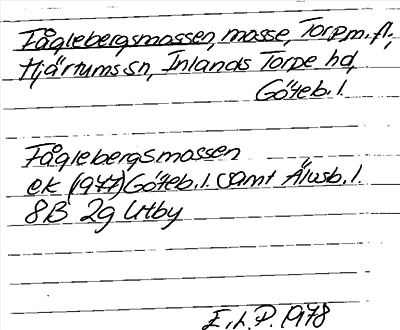 Fåglebergsmossen, mosse, Torp m. fl.,
Hjärtums sn, Inlands Torpe hd,
Göteb. l.
Fåglebergsmossen
ek (1977) Göteb. l. samt Älvsb. l.
8B 2g Utby
1978